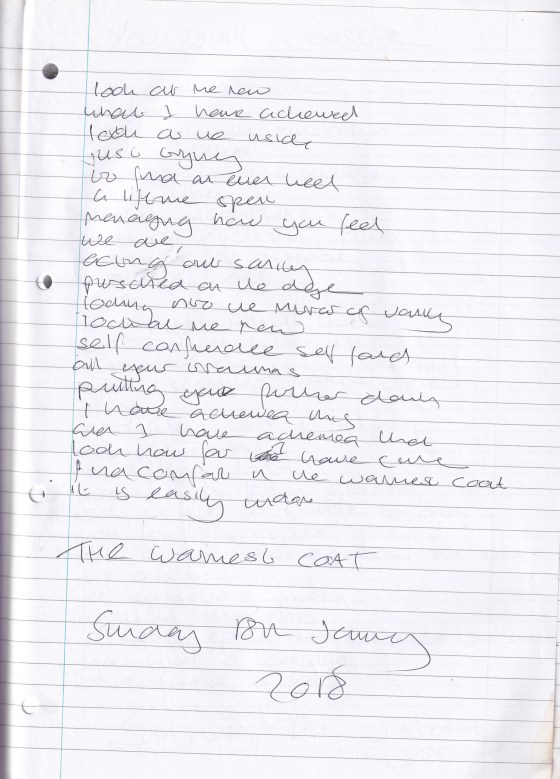 look at me now
what I have achieved
look at me inside
just trying
to find an even keel
a lifetime spent
managing how you feel
we are,
acting out sanity
perched on the edge
looking into the mirror of vanity
look at me now
self confidence self
all your traumas
pulling you further down
I have achieved this
and I have achieved that
look how far I have come
find comfort in the warmest coat
it is easily undone
THE WARMEST COAT
Sunday 18th January
2018